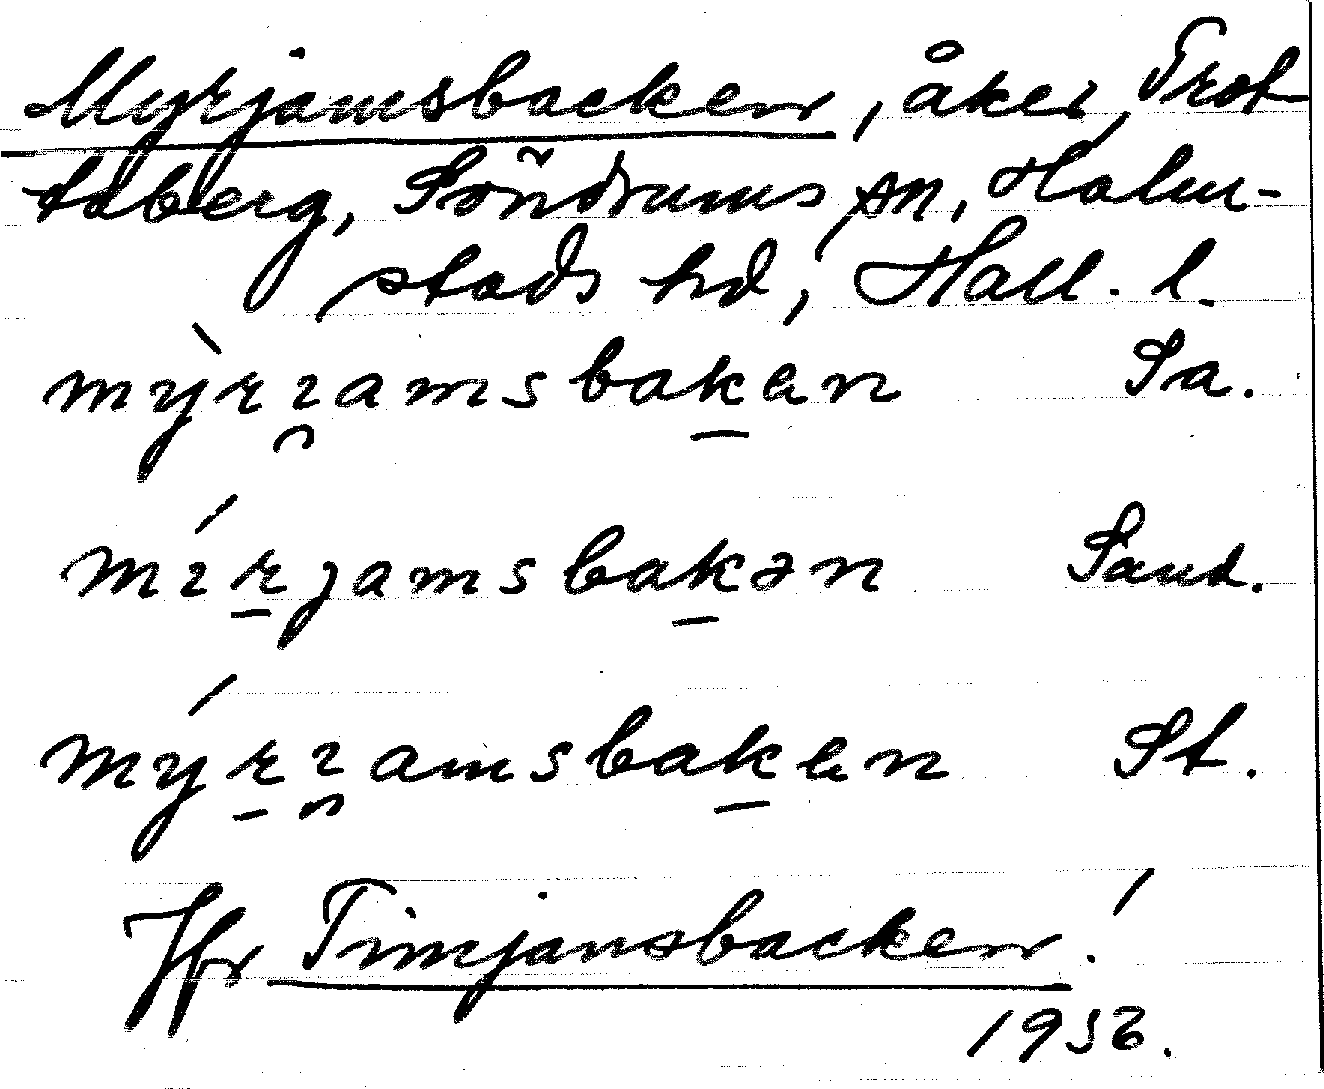 Myrjamsbacken, åker, Trot-
taberg, Söndrums sn, Halm-
stads hd, Hall. l.
mỳrɿ̯amsbak̲en Sa.
mír̲jamsbak̲ən Sand.
mýr̲ɿ̯amsbak̲en St.
Jfr Timjansbacken!
1932.